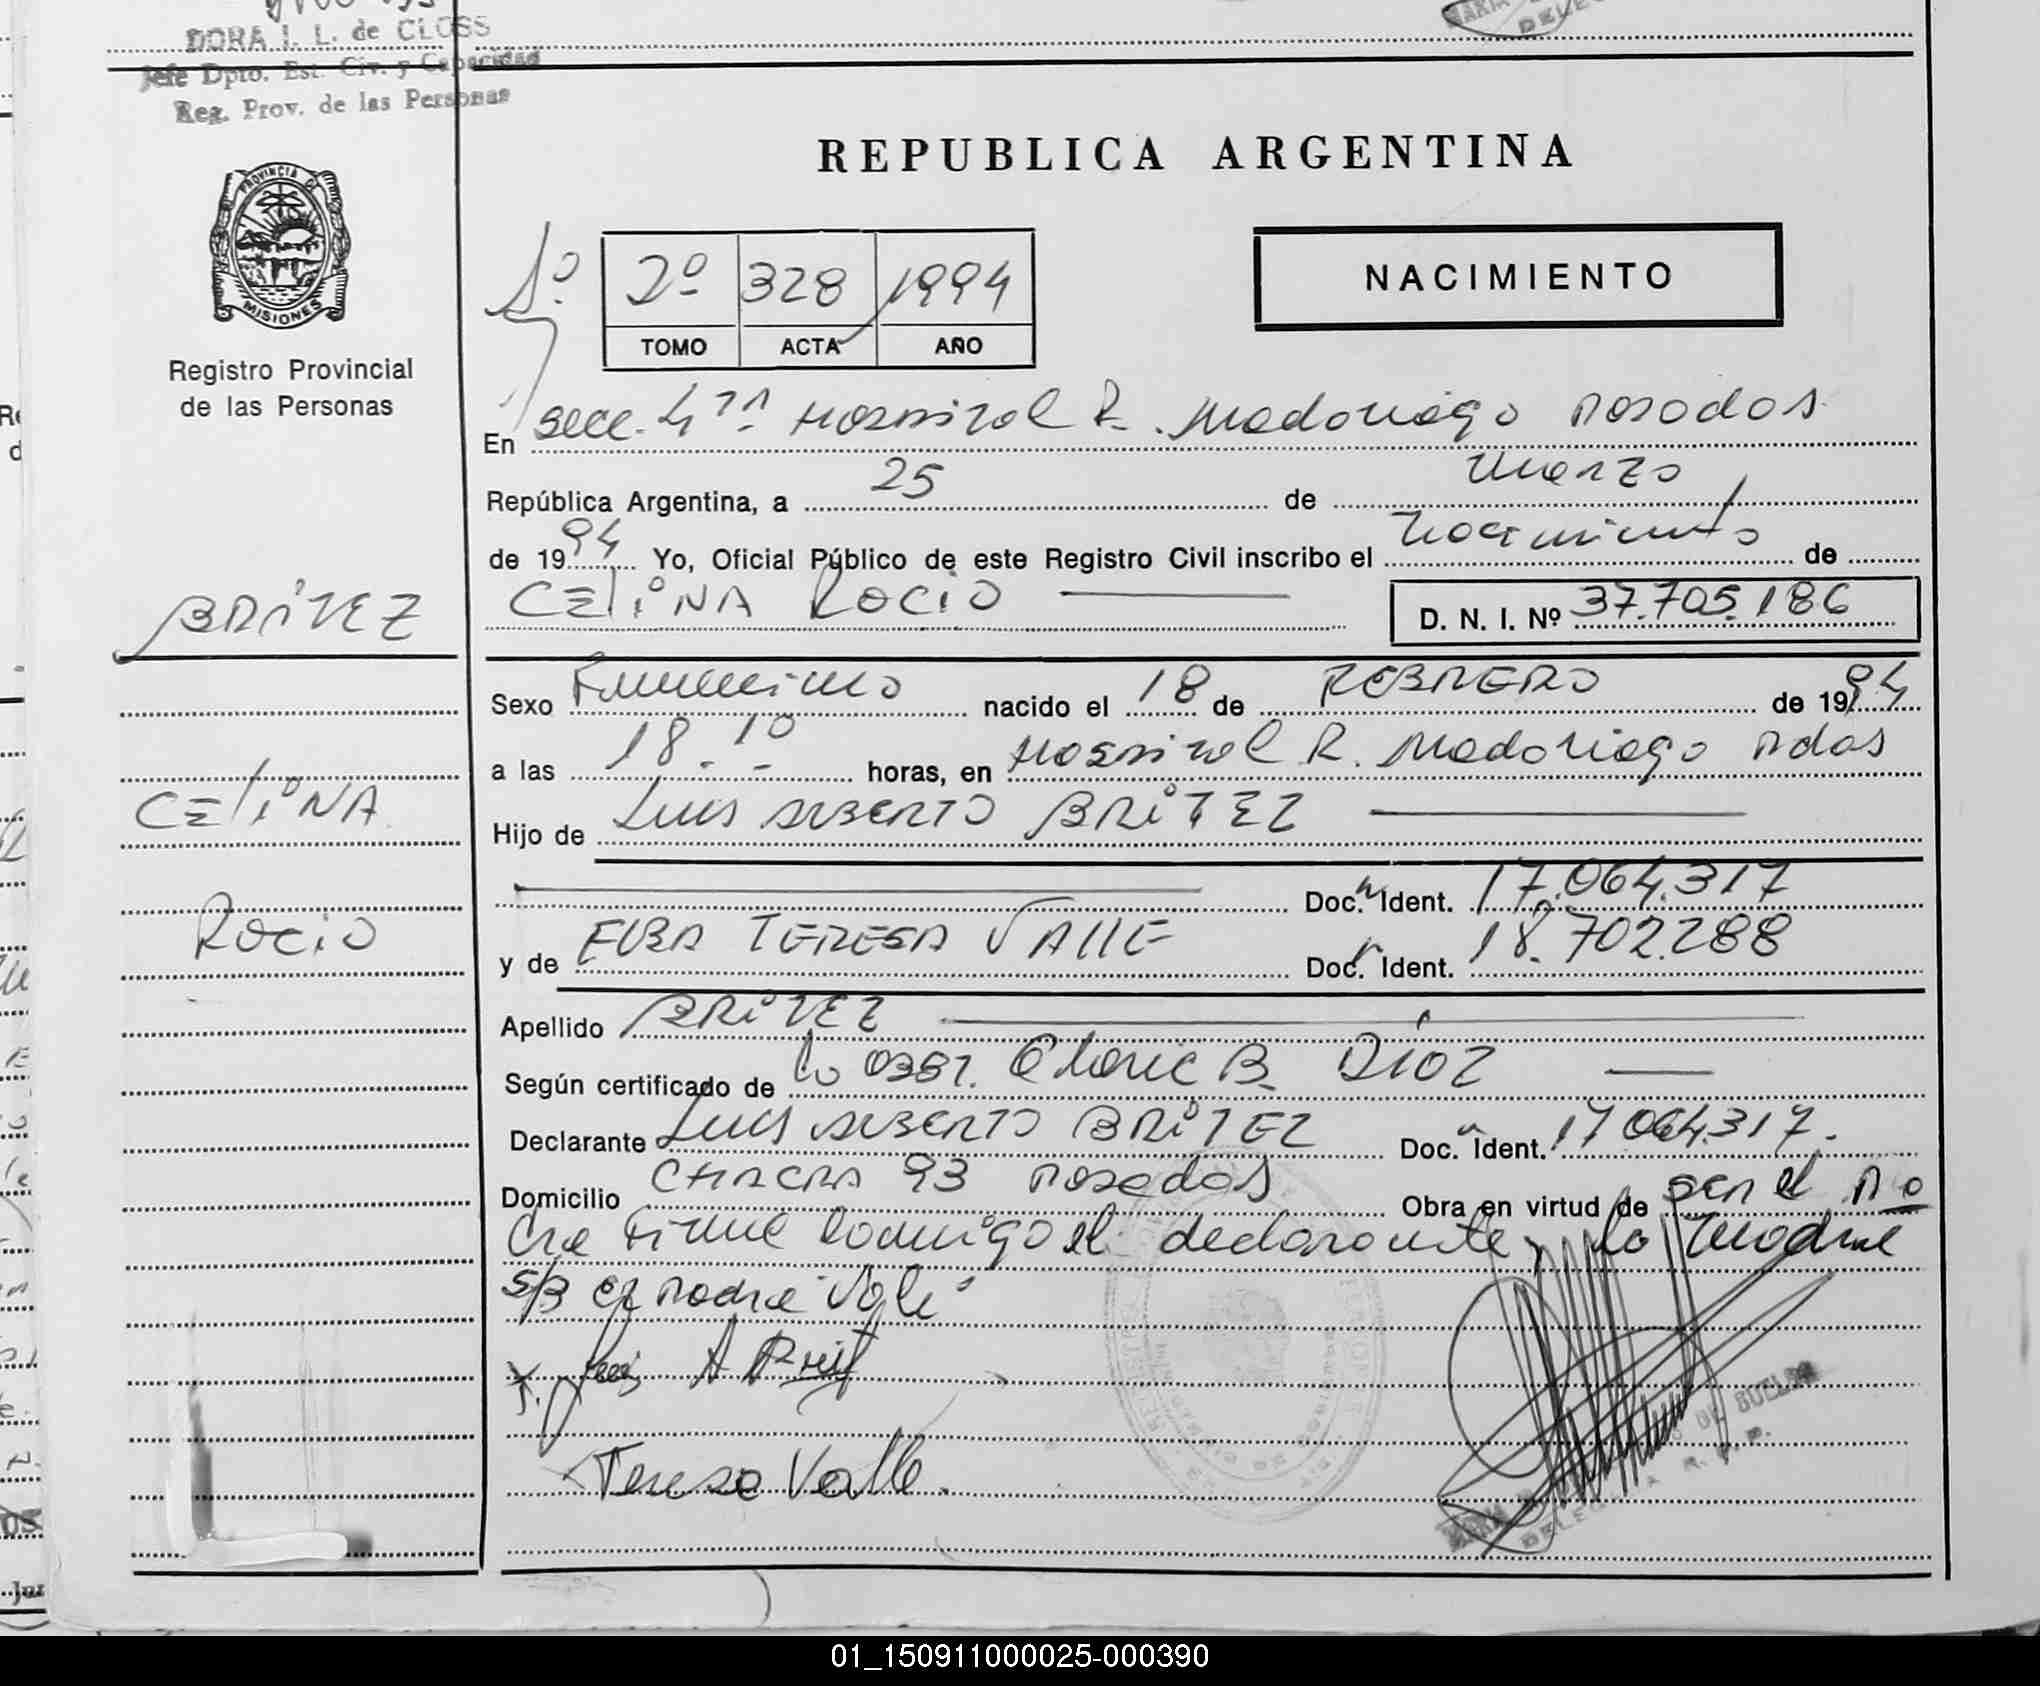 DORA I. L. de CLOSS
Jefe Dpto. Est. Civ. y Capacidad
Reg. Prov. de las Personas
REPUBLICA ARGENTINA
PROVINCIA DE
MISIONES
Registro Provincial
de las Personas
2º 328 1994
TOMO ACTA AÑO
NACIMIENTO
En Secc. 4ta Hospital R. Madariaga Posadas
República Argentina, a 25 de Marzo
de 1994 Yo, Oficial Público de este Registro Civil inscribo el Nacimiento de
CELINA ROCIO
D. N. I. Nº 37.705.186
BRITEZ
CELINA
ROCIO
Sexo Femenino nacido el 18 de FEBRERO de 1994
a las 18.10 horas, en Hospital R. Madariaga Pdas
Hijo de Luis ALBERTO BRITEZ
Doc. Ident. 17.064.317
y de ELBA TERESA VALLE Doc. Ident. 18.702.288
Apellido BRITEZ
Según certificado de la obst. B. Díaz
Declarante Luis ALBERTO BRITEZ Doc. Ident. 17064317.
Domicilio CHACRA 93 Posadas Obra en virtud de ser el Pa
dre Firma conmigo el declarante y la madre
S/B padre Vale
Teresa Valle.
DELEGADA R. P. P.
01_150911000025-000390